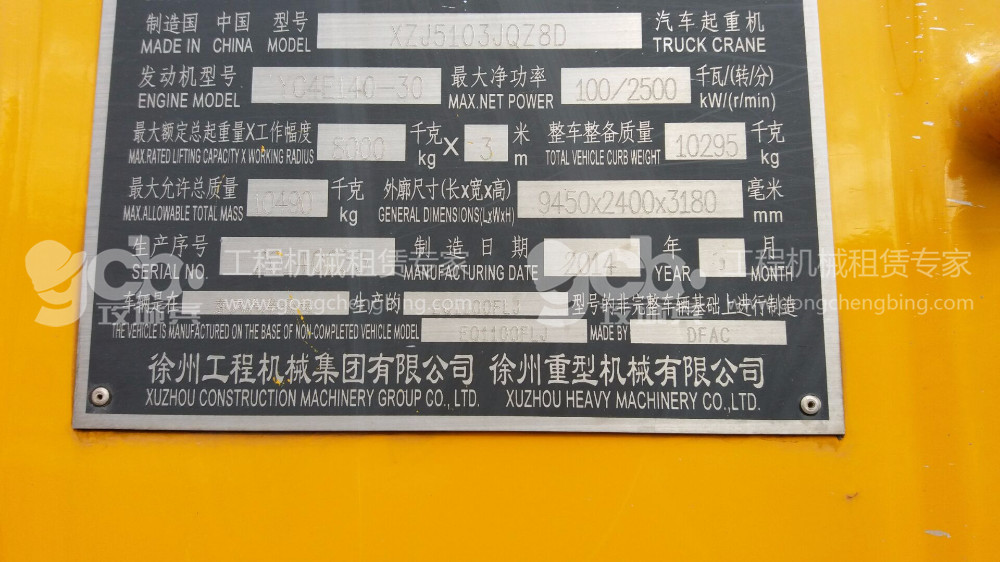 制造国 中国 型号 XZJ5103JQZ8D 汽车起重机
MADE IN CHINA MODEL TRUCK CRANE
发动机型号 YC4E140-30 最大净功率 100/2500 千瓦/(转/分)
ENGINE MODEL MAX.NET POWER kW/(r/min)
最大额定总起重量X工作幅度 8000 千克 X 3 米 整车整备质量 10295 千克
MAX.RATED LIFTING CAPACITY X WORKING RADIUS kg m TOTAL VEHICLE CURB WEIGHT kg
最大允许总质量 10490 千克 外廓尺寸(长X宽X高) 9450x2400x3180 毫米
MAX.ALLOWABLE TOTAL MASS kg GENERAL DIMENSIONS(LxWxH) mm
生产序号 制造日期 2014 年 月
SERIAL NO. MANUFACTURING DATE YEAR MONTH
gcb 工程机械租赁专家 gcb 工程机械租赁专家
车辆是在 生产的 型号的非完整车辆基础上进行制造
www.gongchengbing.com www.gongchengbing.com
THE VEHICLE IS MANUFACTURED ON THE BASE OF NON-COMPLETED VEHICLE MODEL EQ1100FLJ MADE BY DFAC
徐州工程机械集团有限公司 徐州重型机械有限公司
XUZHOU CONSTRUCTION MACHINERY GROUP CO.,LTD. XUZHOU HEAVY MACHINERY CO.,LTD.